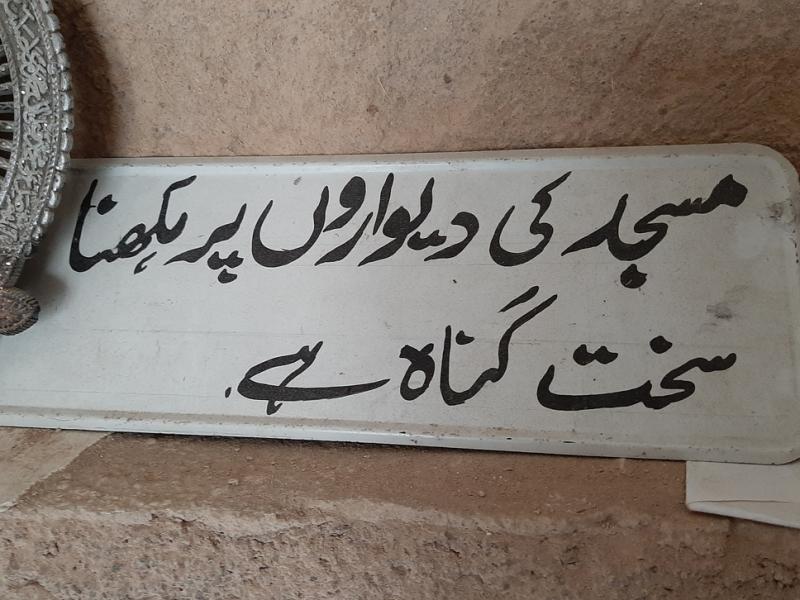 مسجد کی دیواروں پر لکھنا
سخت گناہ ہے.